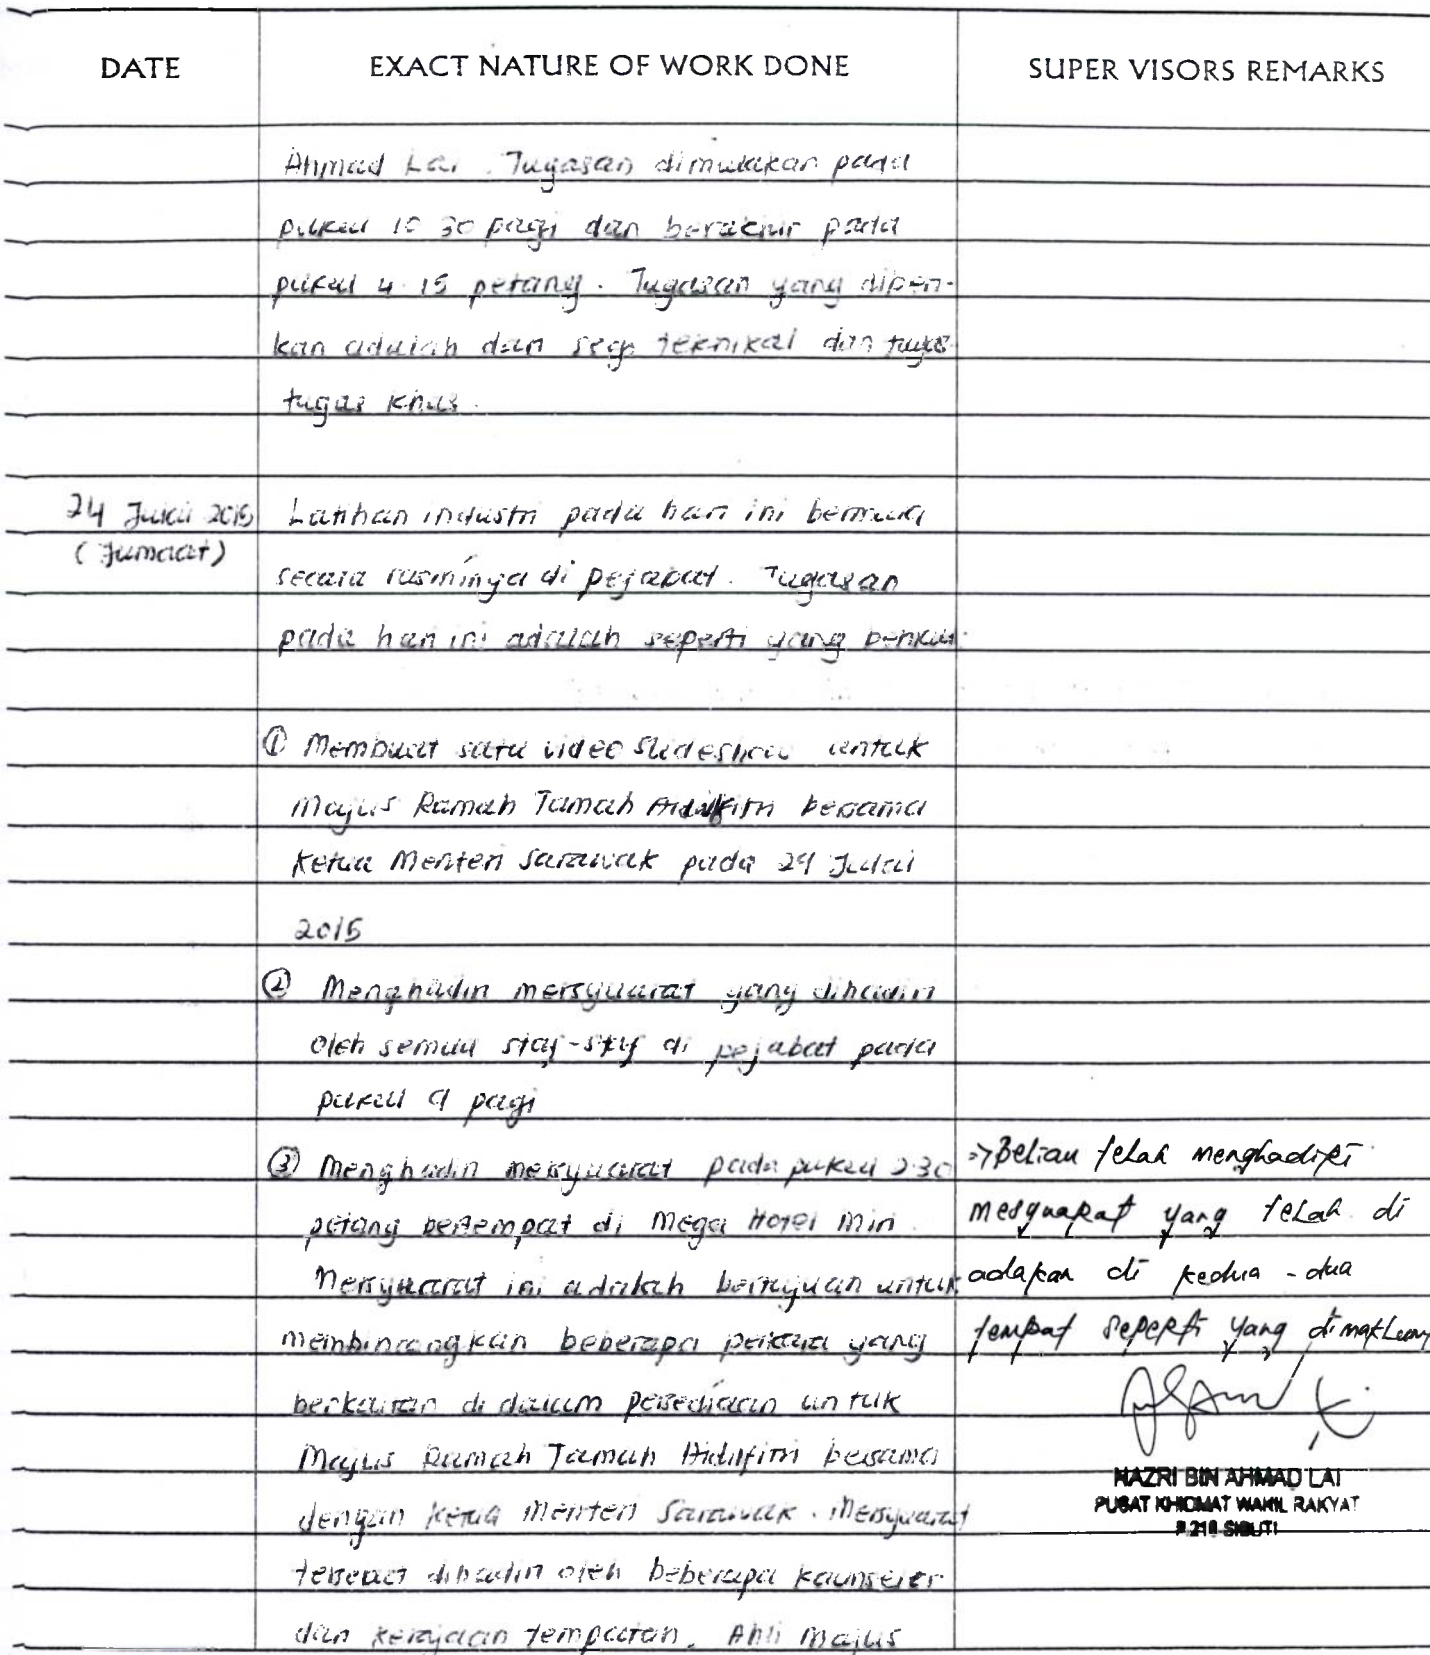 DATE
EXACT NATURE OF WORK DONE
SUPER VISORS REMARKS
Ahmad Lai. Tugasan dimulakan pada
pukul 10.30 pagi dan berakhir pada
pukul 4.15 petang. Tugasan yang diberi-
kan adalah dari segi teknikal dan tugas-
tugas khas.
24 Julai 2015
(Jumaat)
Latihan industri pada hari ini bermula
secara rasminya di pejabat. Tugasan
pada hari ini adalah seperti yang berikut:
① Membuat satu video slideshow untuk
Majlis Ramah Tamah Aidilfitri bersama
Ketua Menteri Sarawak pada 29 Julai
2015
② Menghadiri mersyuarat yang dihadiri
oleh semua staf-staf di pejabat pada
pukul 9 pagi
③ Menghadiri mersyuarat pada pukul 2.30
petang bertempat di Mega Hotel Miri.
Mersyuarat ini adalah bertujuan untuk
membincangkan beberapa perkara yang
berkaitan di dalam persediaan untuk
Majlis Ramah Tamah Aidilfitri bersama
dengan Ketua Menteri Sarawak. Mersyuarat
tersebut dihadiri oleh beberapa kaunselor
dan kerajaan tempatan. Ahli Majlis
=> Beliau telah menghadiri
mesyuarat yang telah di
adakan di kedua-dua
tempat seperti yang dimaklum
NAZRI BIN AHMAD LAI
PUSAT KHIDMAT WAKIL RAKYAT
P.218 SIBUTI